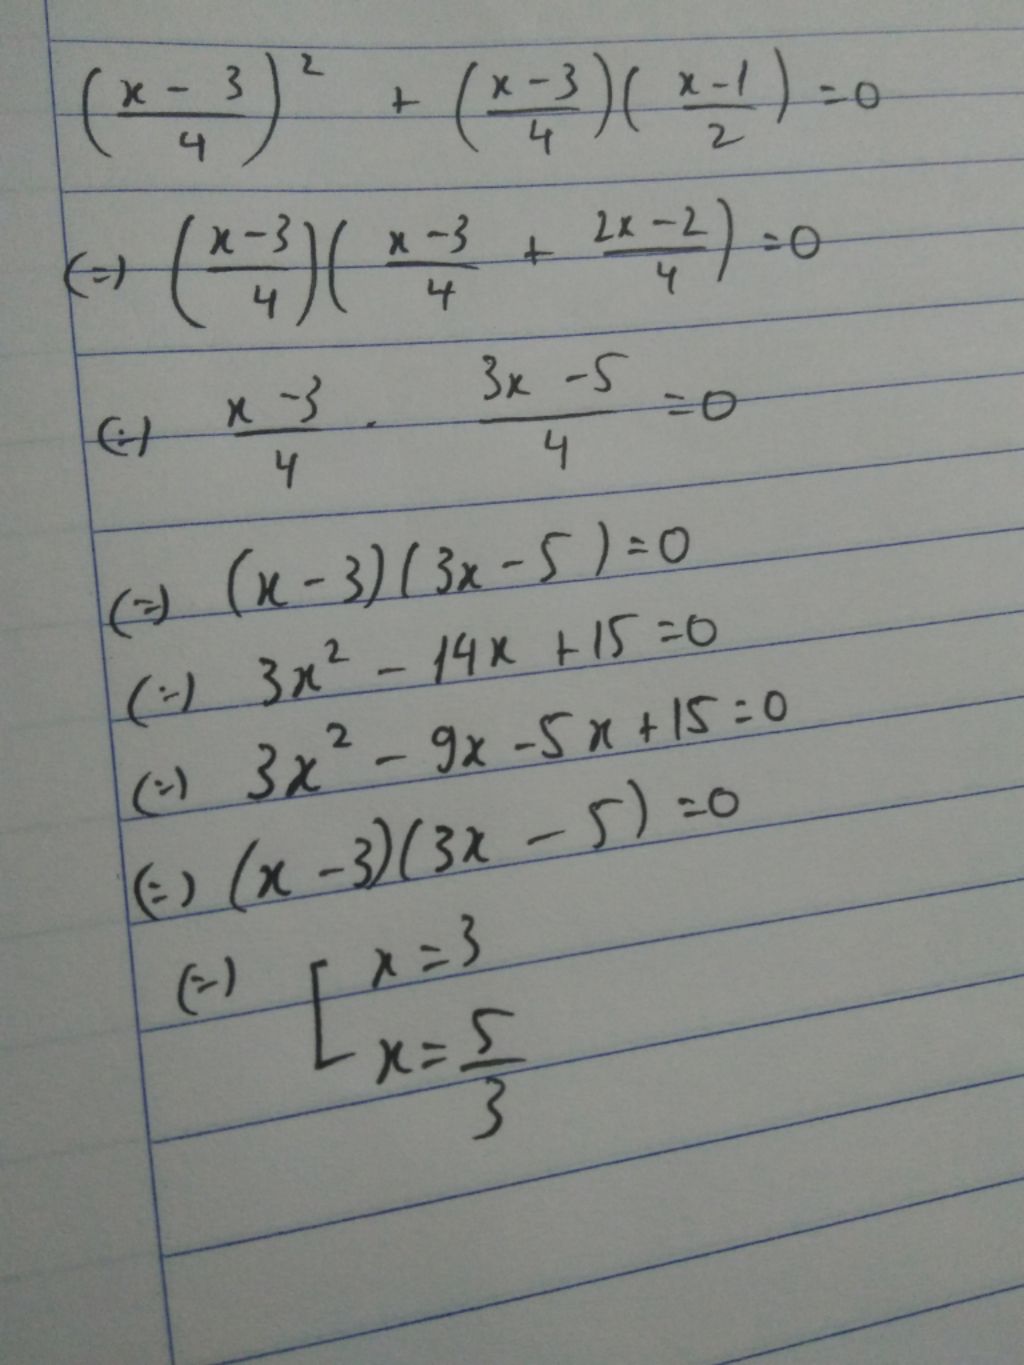 (x - 3 / 4)² + (x - 3 / 4)(x - 1 / 2) = 0
(=) (x - 3 / 4)(x - 3 / 4 + 2x - 2 / 4) = 0
(=) x - 3 / 4 . 3x - 5 / 4 = 0
(=) (x - 3)(3x - 5) = 0
(=) 3x² - 14x + 15 = 0
(=) 3x² - 9x - 5x + 15 = 0
(=) (x - 3)(3x - 5) = 0
(=) [ x = 3
x = 5 / 3